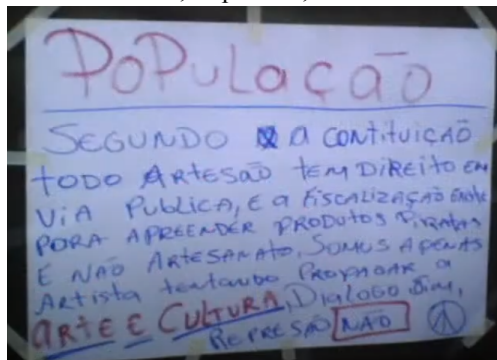 POPULAÇÃO
SEGUNDO A CONTITUIÇAÕ
TODO ARTESAÕ TEM DIREITO EM
VIA PUBLICA, E A FISCALIZAÇAÕ EXISTE
PARA APREENDER PRODUTOS PIRATAS
E NAÕ ARTESANATO, SOMUS APENAS
Artista tentando PROPAGAR a
ARTE E CULTURA, DIALOGO Sim,
REPRESAÕ NÃO